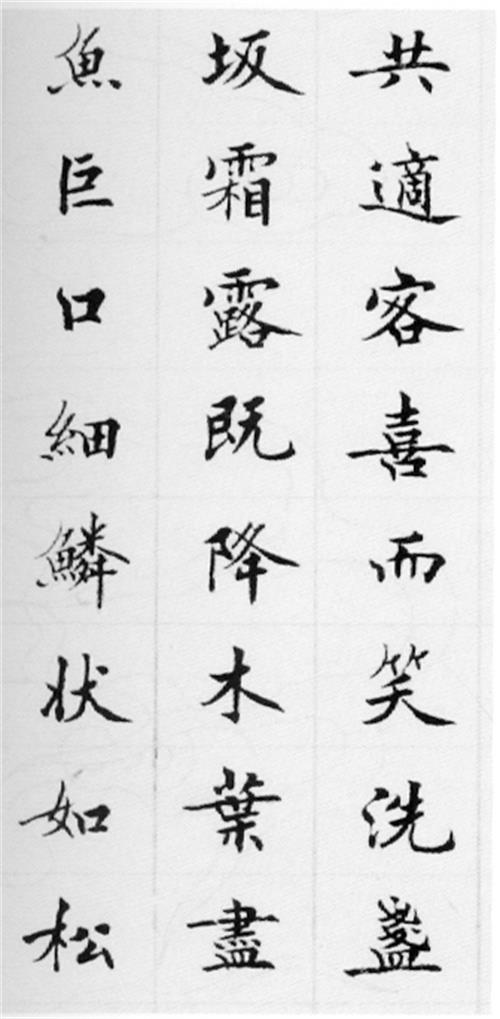 共適客喜而笑洗盞
坂霜露既降木葉盡
魚巨口細鱗狀如松